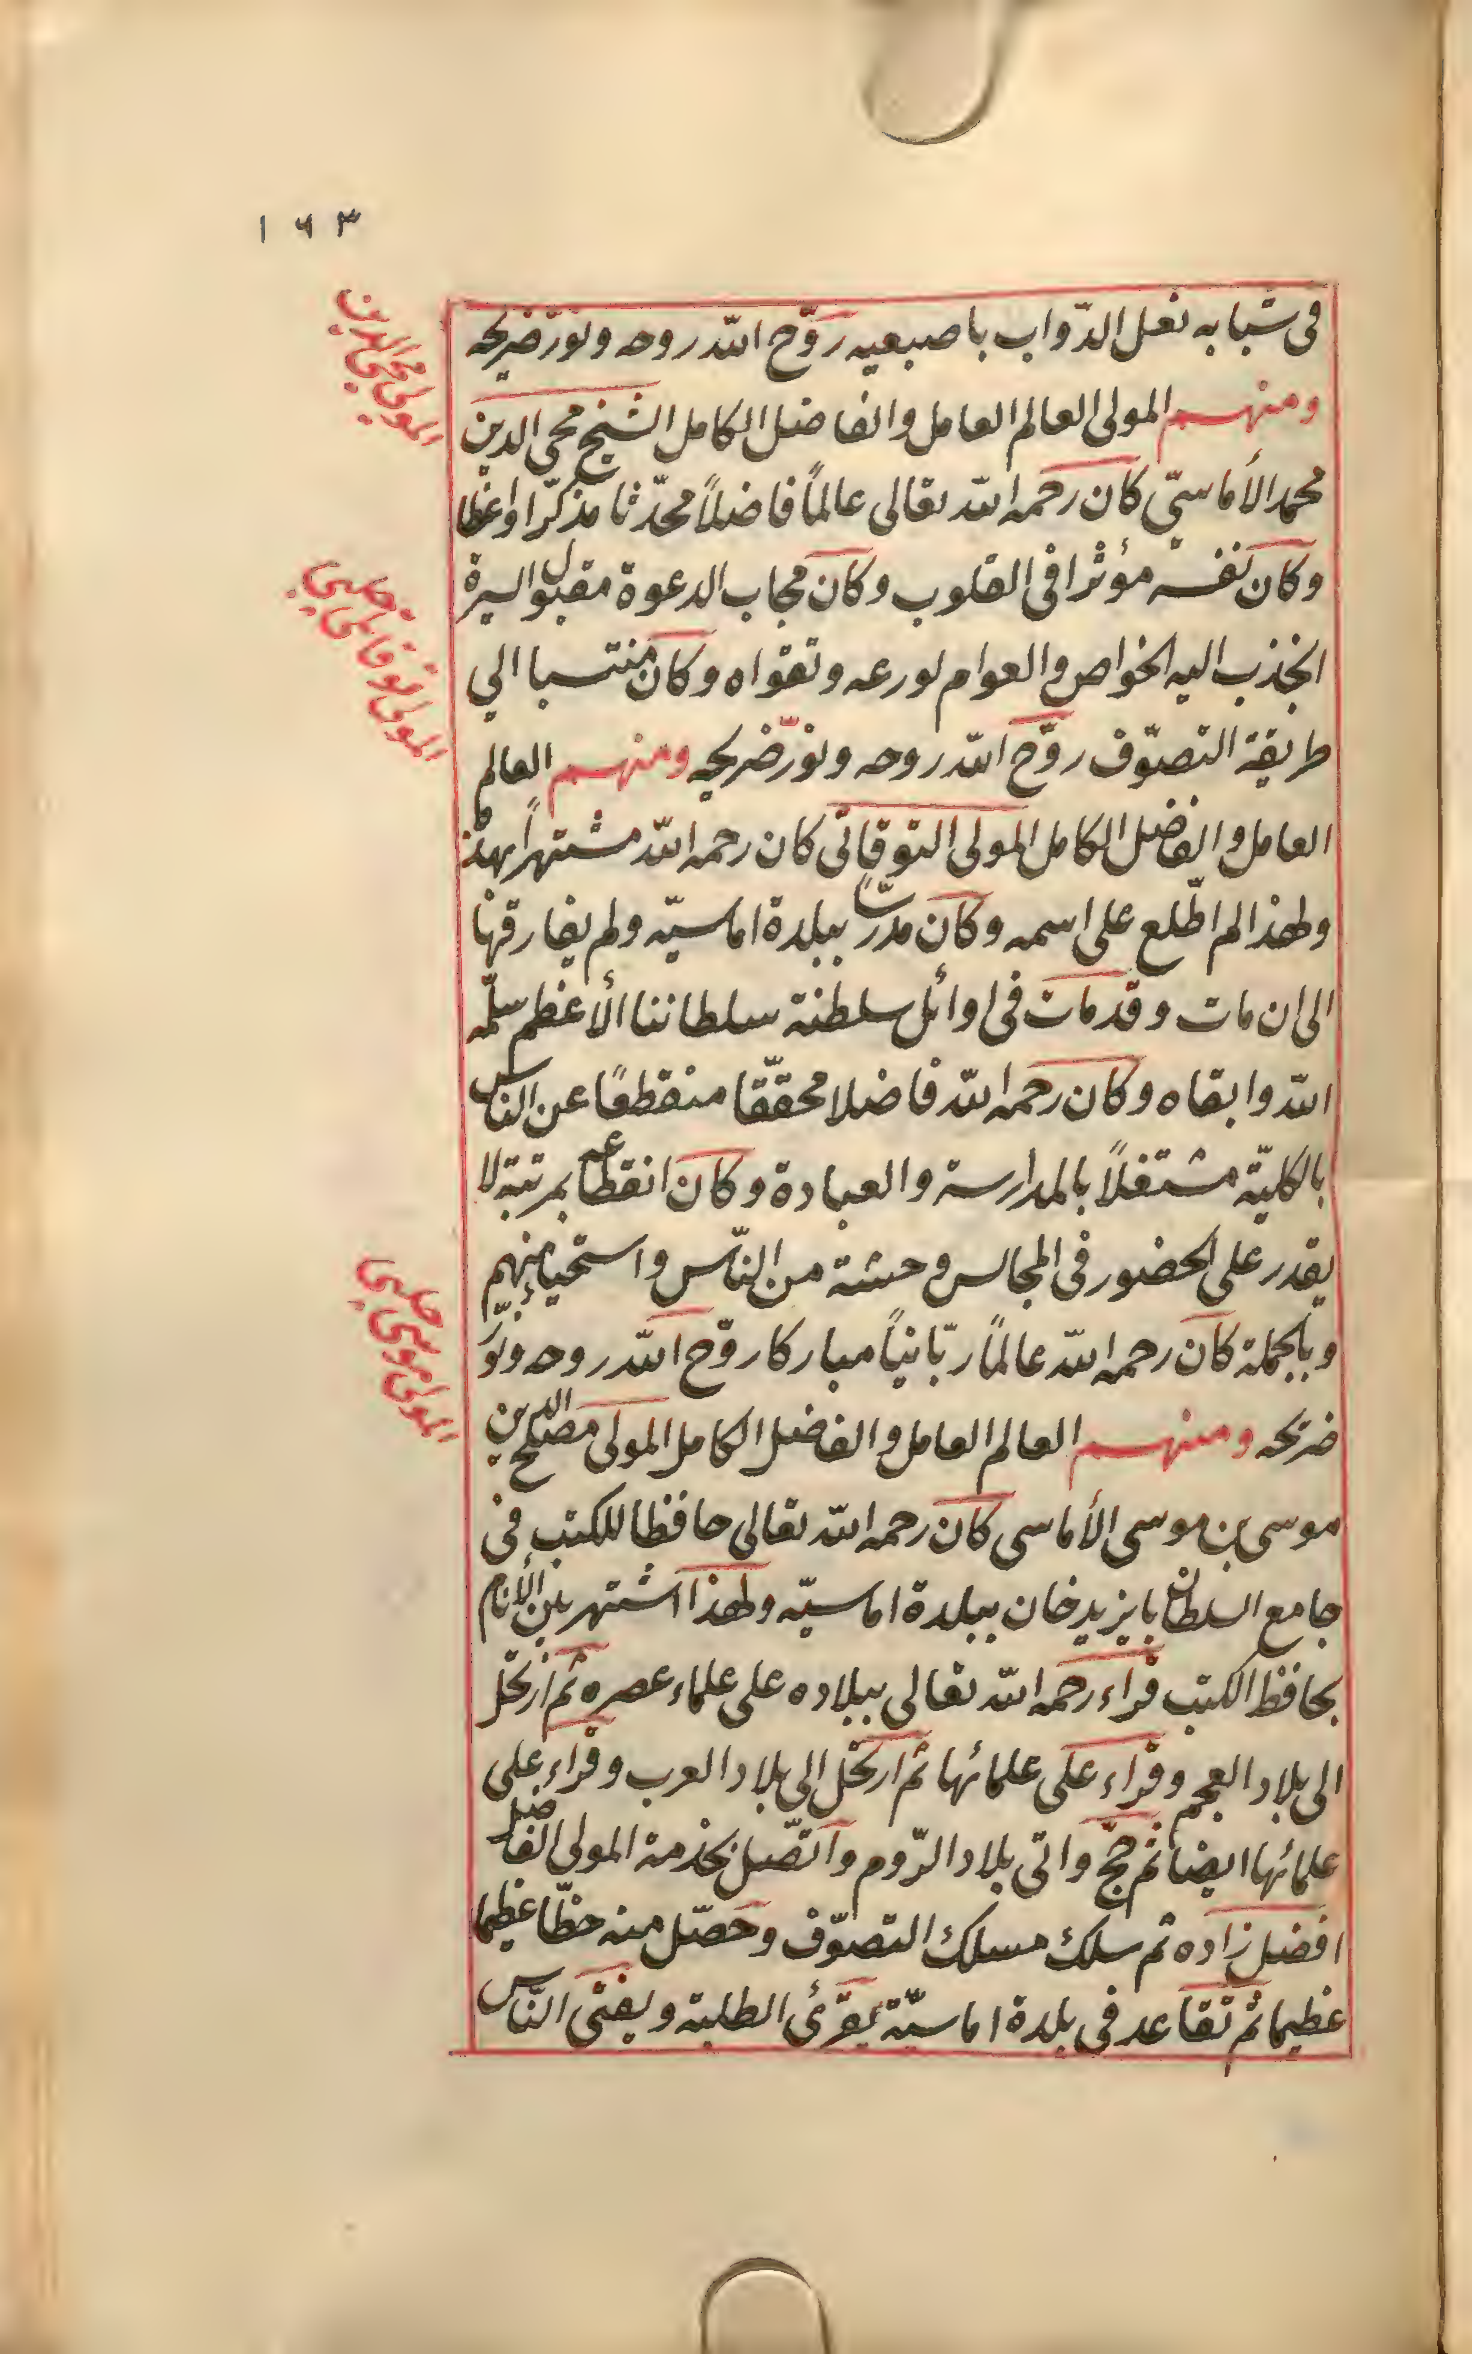 ١٦٣
في شبابه نعل الدّواب باصبعيه روّح اللّه روحه ونوّر ضريحه
ومنهم المولى العالم العامل والفاضل الكامل الشيخ محيى الدين
محمد الأماسيّ كان رحمه اللّه تعالى عالمًا فاضلاً محدّثا مذكّرا واعظا
وكان نفسه مؤثرا في القلوب وكان مجاب الدعوة مقبول السيرة
انجذب اليه الخواص والعوام لورعه وتقواه وكان منتسبا الي
طريقة التصوّف روّح اللّه روحه ونوّر ضريحه ومنهم العالم
العامل والفاضل الكامل المولى التوقاتى كان رحمه اللّه مشتهرًا بهذه
ولهذا لم اطّلع على اسمه وكان مدرّسًا ببلدة اماسيّه ولم يفارقها
الى ان مات وقد مات في اوائل سلطنة سلطاننا الأعظم سلّمه
اللّه وابقاه وكان رحمه اللّه فاضلا محقّقا منقطعًا عن الناس
بالكليّة مشتغلاً بالمدارسة والعبادة وكان انقطاعه بمرتبة لا
يقدر على الحضور في المجالس وحشة من النّاس واستحياء منهم
وبالجملة كان رحمه اللّه عالمًا ربّانيًا مباركا روّح اللّه روحه ونوّر
ضريحه ومنهم العالم العامل والفاضل الكامل المولى مصلح الدين
موسى بن موسى الأماسى كان رحمه اللّه تعالى حافظا للكتب في
جامع السلطان بايزيد خان ببلدة اماسيّه ولهذا اشتهر بين الأنام
بحافظ الكتب قراء رحمه اللّه تعالى ببلاده على علماء عصره ثم ارتحل
الى بلاد العجم وقراء على علمائها ثم ارتحل الى بلاد العرب وقراء على
علمائها ايضا ثم حجّ واتى بلاد الرّوم واتّصل بخدمة المولى الفاضل
افضل زاده ثم سلك مسلك التصوّف وحصّل منه حظّا عظيما
عظيما ثم تقاعد في بلدة اماسيّة يقرئ الطلبة ويفتى النّاس
المولى محيى الدين
المولى توقاتى چلبي
المولى موسى چلبي